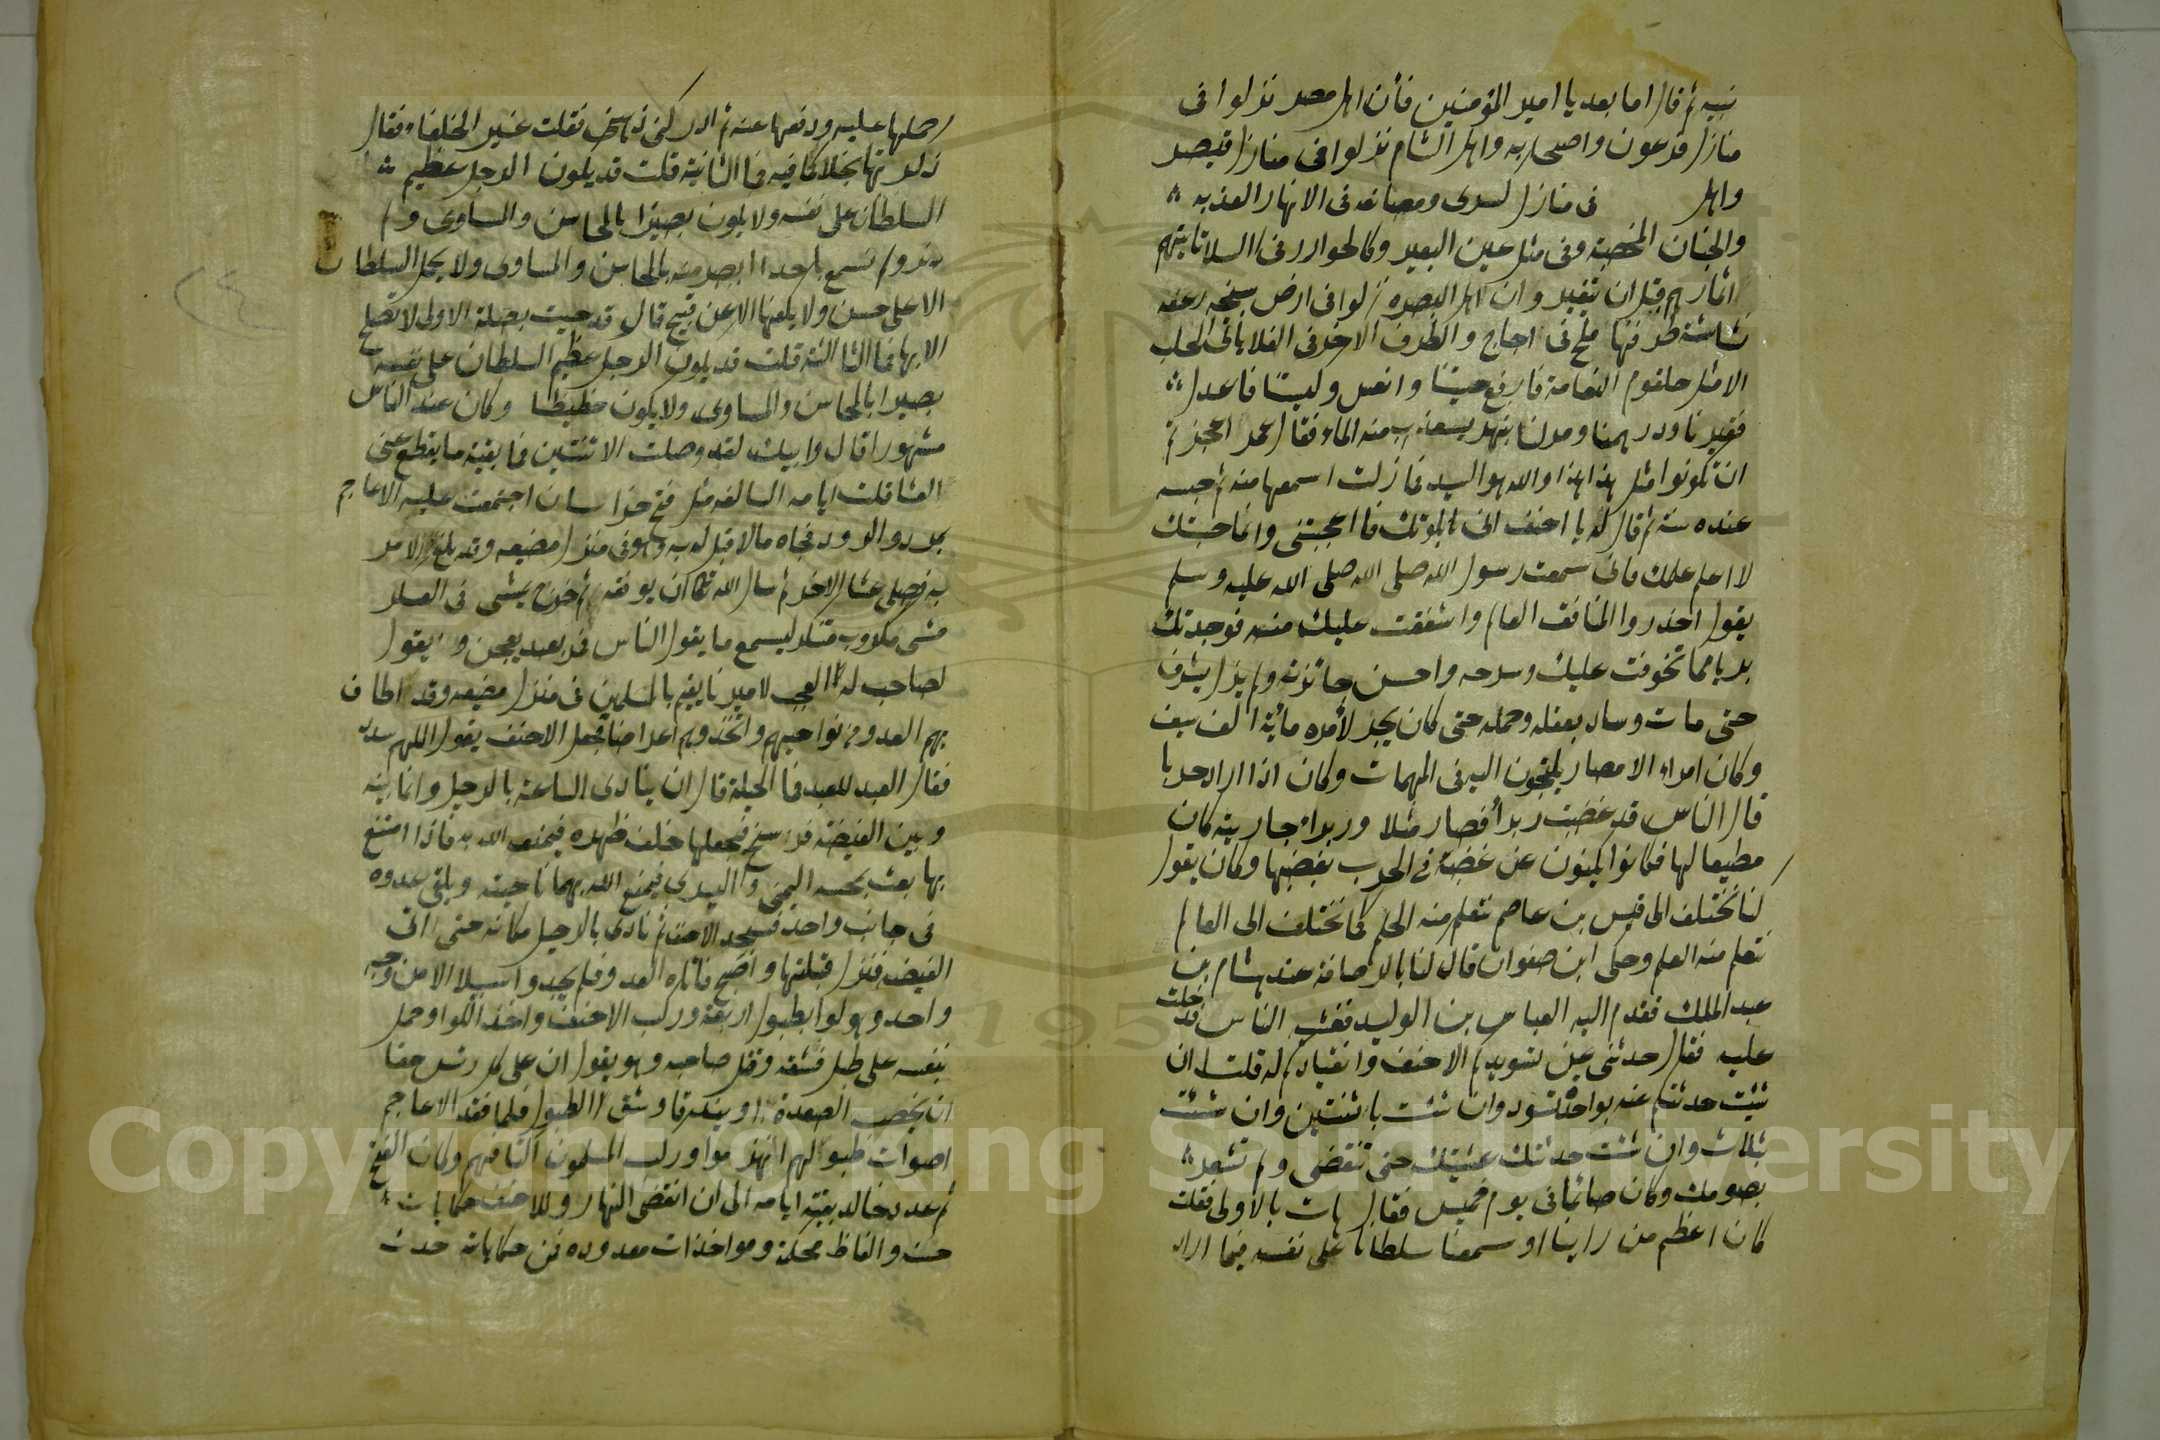 نبيه ثم قال اما بعد يا امير المؤمنين فأن اهل مصر نزلوا فى
منازل فرعون واصحابه واهل الشام نزلوا فى منازل قيصر
واهل فى منازل كسرى ومصانعه فى الانهار العذبه
والجنان المخصبة وفى مثل عين البعير وكالحوار فى السلا تاتيهم
اثمارهم قبل ان تتغير وان اهل البصره نزلوا فى ارض سبخه زعقه
نشاشة طرفها ملح فى اجاج والطرف الاخر فى الفلا ياتى الجلب
الا مثل حلقوم النعامة فارفع
ودرهمنا ومر لنا بنهر يستعذب منه الماء فقال عمر اعجزتم
ان تكونوا مثل هذا هذا والله هو السيد فما زلت اسمعها منه ثم حبسه
عنده سنة ثم قال له يا احنف انى بلوتك فما اعجبتنى وانما حبستك
لا اعلم علمك فانى سمعت رسول الله صلى الله صلى الله عليه وسلم
يقول احذروا المنافق العالم واشفقت عليك منه فوجدتك
بريا مما تخوفت عليك وسرحه واحسن جائزته ولم يزل يشرف
حتى مات وساد بعقله وحمله حتى كان يجز لأمره مائة الف سيف
وكان امراء الامصار يلتجون اليه فى المهمات وكان اذا اراد حربا
قال الناس قد غضبت زبرأ فصار مثلا وزبراء جاريته كان
مطيعا لها فكانوا يكنون عن غضبه فى الحرب بغضبها وكان يقول
كنا نختلف الى قيس بن عاصم نتعلم منه الحلم كما نختلف الى العالم
نتعلم منه العلم وحكى ابن صفوان قال كنا بالرصافة عند هشام بن
عبد الملك فقدم اليه العباس بن الوليد فغشيه الناس فدخلت
عليه فقال حدثنى عن تسويدكم الاحنف وانقيادكم له قلت ان
شئت حدثتكم عنه بواحدة تسود وان شئت باثنتين وان شئت
بثلاث وان شئت حدثتك عشيتك حتى تنقضى ولم تشعر
بصومك وكان صائما فى يوم خميس فقال هات بالأولى فقلت
كان اعظم من راينا او سمعنا سلطانا على نفسه فيما اراد
حملها عليه ودفعها عنه ثم ادركنى ذهنى فقلت غير الخلفاء فقال
ذكرتها بخلا كافيه فما الثانية قلت قد يكون الرجل عظيم
السلطان على نفسه ولا يكون بصيرا بالمحاسن والمساوى ولم
نر ولم نسمع باحد ابصر منه بالمحاسن والمساوى ولا يحمل السلطان
الا على حسن ولا يكفها الا عن قبيح قال قد جيت بصلة الاولى لا تصلح
الا بها فما الثالثة قلت قد يكون الرجل عظيم السلطان على نفسه
بصيرا بالمحاسن والمساوى ولا يكون حظيظا وكان عند الناس
مشهورا قال وابيك لقد وصلت الاثنتين فما بقية ما يقطع عنى
العشا قلت ايامه السالفه مثل فتح خراسان اجتمعت عليه الاعاجم
بمرو الرود فجاه مالا قبل له به وهو فى منزل مضيعه وقد بلغ الامر
به فصلى عشا الاخر ثم سال الله تعالى ان يوفقه ثم خرج يمشى فى العسكر
مشى مكروب متنكر ليسمع ما يقول الناس فمر بعبد يعجن وهو يقول
لصاحب له العجب لاميرنا يقيم بالمسلمين فى منزل مضيعه وقد اطاف
بهم العدو من نواحيهم واتخذوهم اعراضا فجعل الاحنف يقول اللهم سدد
فقال العبد للعبد فما الحيلة قال ان ينادى الساعة بالرحيل وانما بينه
وبين الغيضة فرسخ فيجعلها خلف ظهره فيمنعه الله به فاذا امتنع
بها بعث بمجنبته اليمنى واليسرى فيمنع الله بهما ناحيته ويلقى عدوه
فى جانب واحد فسجد الاحنف ثم نادى بالرحيل مكانه حتى اتى
الغيضه فنزل قبلتها واصبح فاتاه العدو فلم يجدوا سبيلا الا من وجه
واحد وهولوا بطبول اربعة وركب الاحنف واخذ اللوا وحمل
بنفسه على طبل فشقه وقتل صاحبه وهو يقول ان على كل رئيس حقا
ان يخضب الصعدة او يندقا وشق الطبول فلما فقد الاعاجم
اصوات طبولهم انهزموا وركب المسلمون اكتافهم وكان الفتح
ثم عدد خالد بقية ايامه الى ان انقضى النهار وللاحنف حكايات
حسنه والفاظ محكمة ومواخذات معدوده فمن حكاياته حدث
Copyright © King Saud University
1957